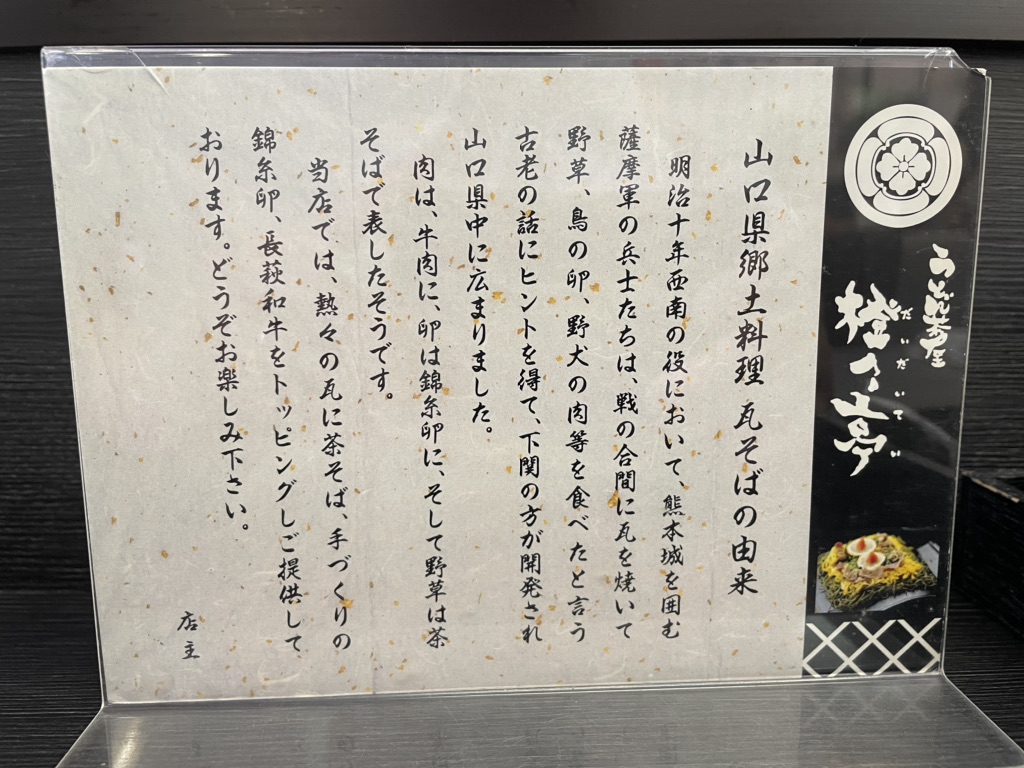 うどん茶屋
橙々亭
だいだいてい
山口県郷土料理 瓦そばの由来
明治十年西南の役において、熊本城を囲む
薩摩軍の兵士たちは、戦の合間に瓦を焼いて
野草、鳥の卵、野犬の肉等を食べたと言う
古老の話にヒントを得て、下関の方が開発され
山口県中に広まりました。
肉は、牛肉に、卵は錦糸卵に、そして野草は茶
そばで表したそうです。
当店では、熱々の瓦に茶そば、手づくりの
錦糸卵、長萩和牛をトッピングしご提供して
おります。どうぞお楽しみ下さい。
店主